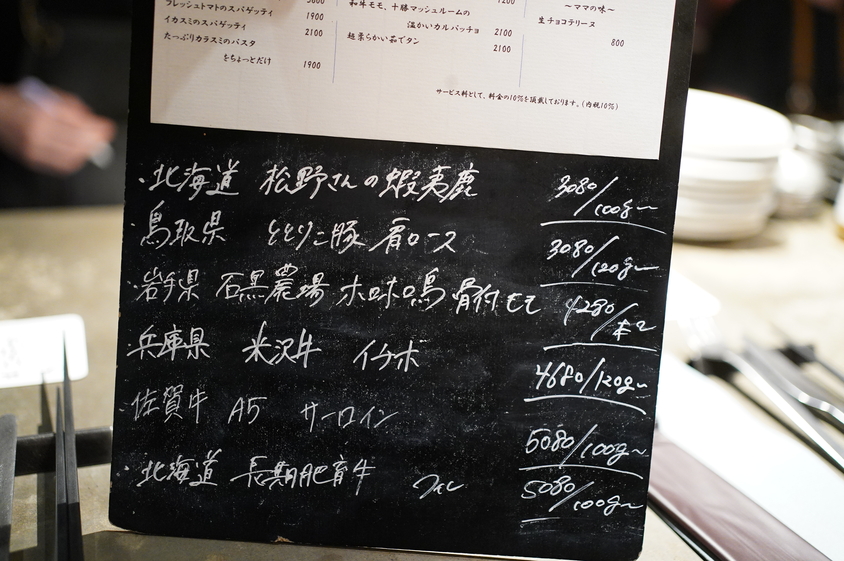 フレッシュトマトのスパゲッティ
イカスミのスパゲッティ 1900
たっぷりカラスミのパスタ 2100
をちょっとだけ 1900
和牛モモ、十勝マッシュルームの
温かいカルパッチョ 2100
超柔らかい茹でタン 2100
～ママの味～
生チョコテリーヌ
800
サービス料として、料金の10%を頂戴しております。(内税10%)
・北海道 松野さんの蝦夷鹿 3080/100g~
・鳥取県 ととりこ豚 肩ロース 3080/120g~
・岩手県 石黒農場 ホロホロ鳥 骨付もも 4280/本
・兵庫県 米沢牛 イチボ 4680/120g~
・佐賀牛 A5 サーロイン 5080/100g~
・北海道 長期肥育牛 ヒレ 5080/100g~